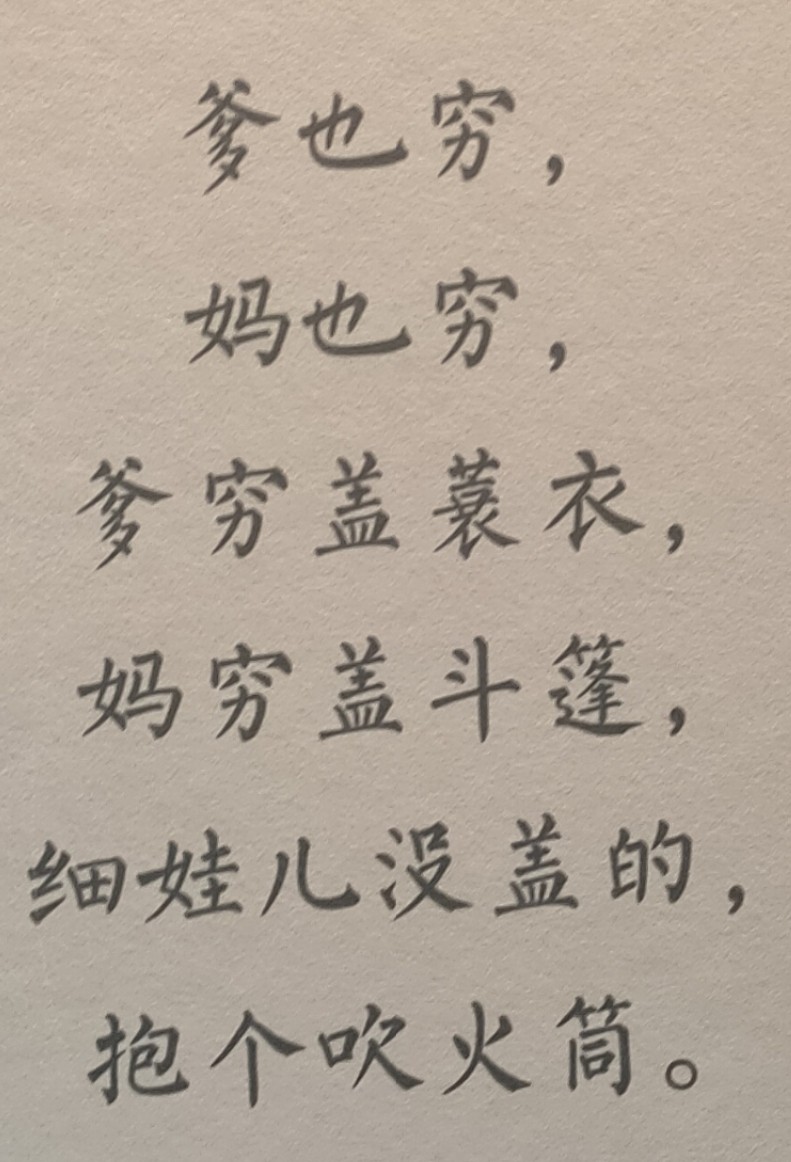 爹也穷，
妈也穷，
爹穷盖蓑衣，
妈穷盖斗篷，
细娃儿没盖的，
抱个吹火筒。